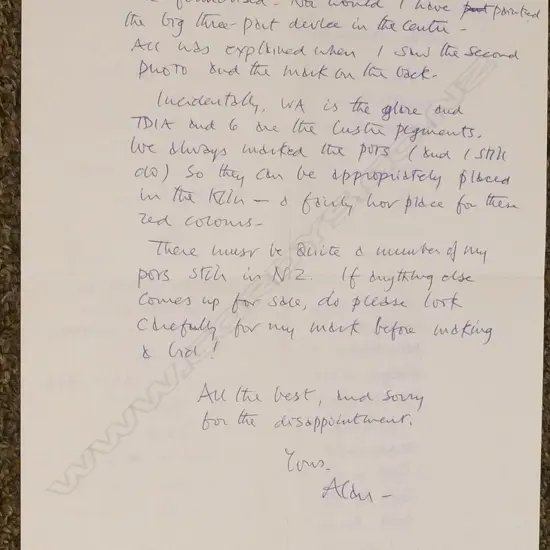 Nor would I have ~~put~~ painted
the big three-part device in the centre -
All was explained when I saw the second
photo and the mark on the back.
Incidentally, WA is the glaze and
TDIA and 6 are the lustre pigments.
We always marked the pots (and I still
do) so they can be appropriately placed
in the kiln – a fairly hot place for these
red colours -
There must be quite a number of my
pots still in NZ. If anything else
comes up for sale, do please look
carefully for my mark before making
a bid!
All the best, and sorry
for the disappointment.
Yours.
Alan -